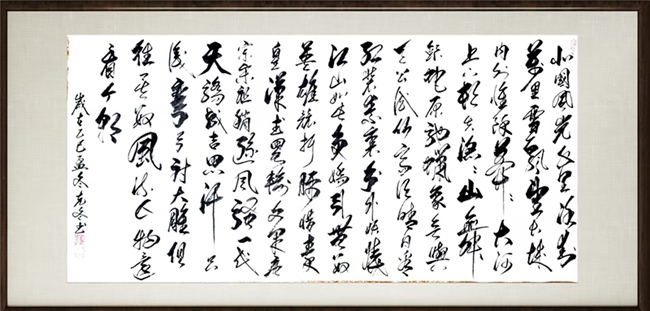 北國風光千里冰封
萬里雪飄望長城
内外惟餘莽〻大河
上下頓失滔〻山舞
銀蛇原馳蠟象欲與
天公試比高須晴日看
紅裝素裹分外妖嬈
江山如此多嬌引無數
英雄競折腰惜秦
皇漢武略輸文采唐
宗宋祖稍遜風騷一代
天驕成吉思汗只
識彎弓射大雕俱
往矣數風流人物還
看今朝
歲在乙巳孟冬